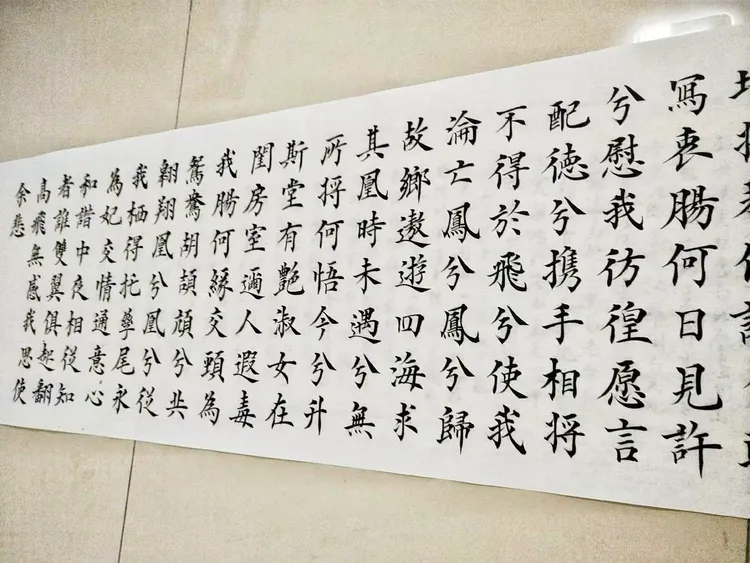 寫衷腸何日見許
兮慰我彷徨愿言
配徳兮携手相将
不得於飛兮使我
淪亡鳳兮鳳兮歸
故鄉遨遊四海求
其凰時未遇兮無
所将何悟今兮升
斯堂有艷淑女在
閨房室邇人遐毒
我腸何緣交頸為
鴛鴦胡頡頏兮共
翱翔凰兮凰兮從
我栖得托孳尾永
為妃交情通意心
和諧中夜相從知
者誰雙翼俱起翻
高飛無感我思使
余悲